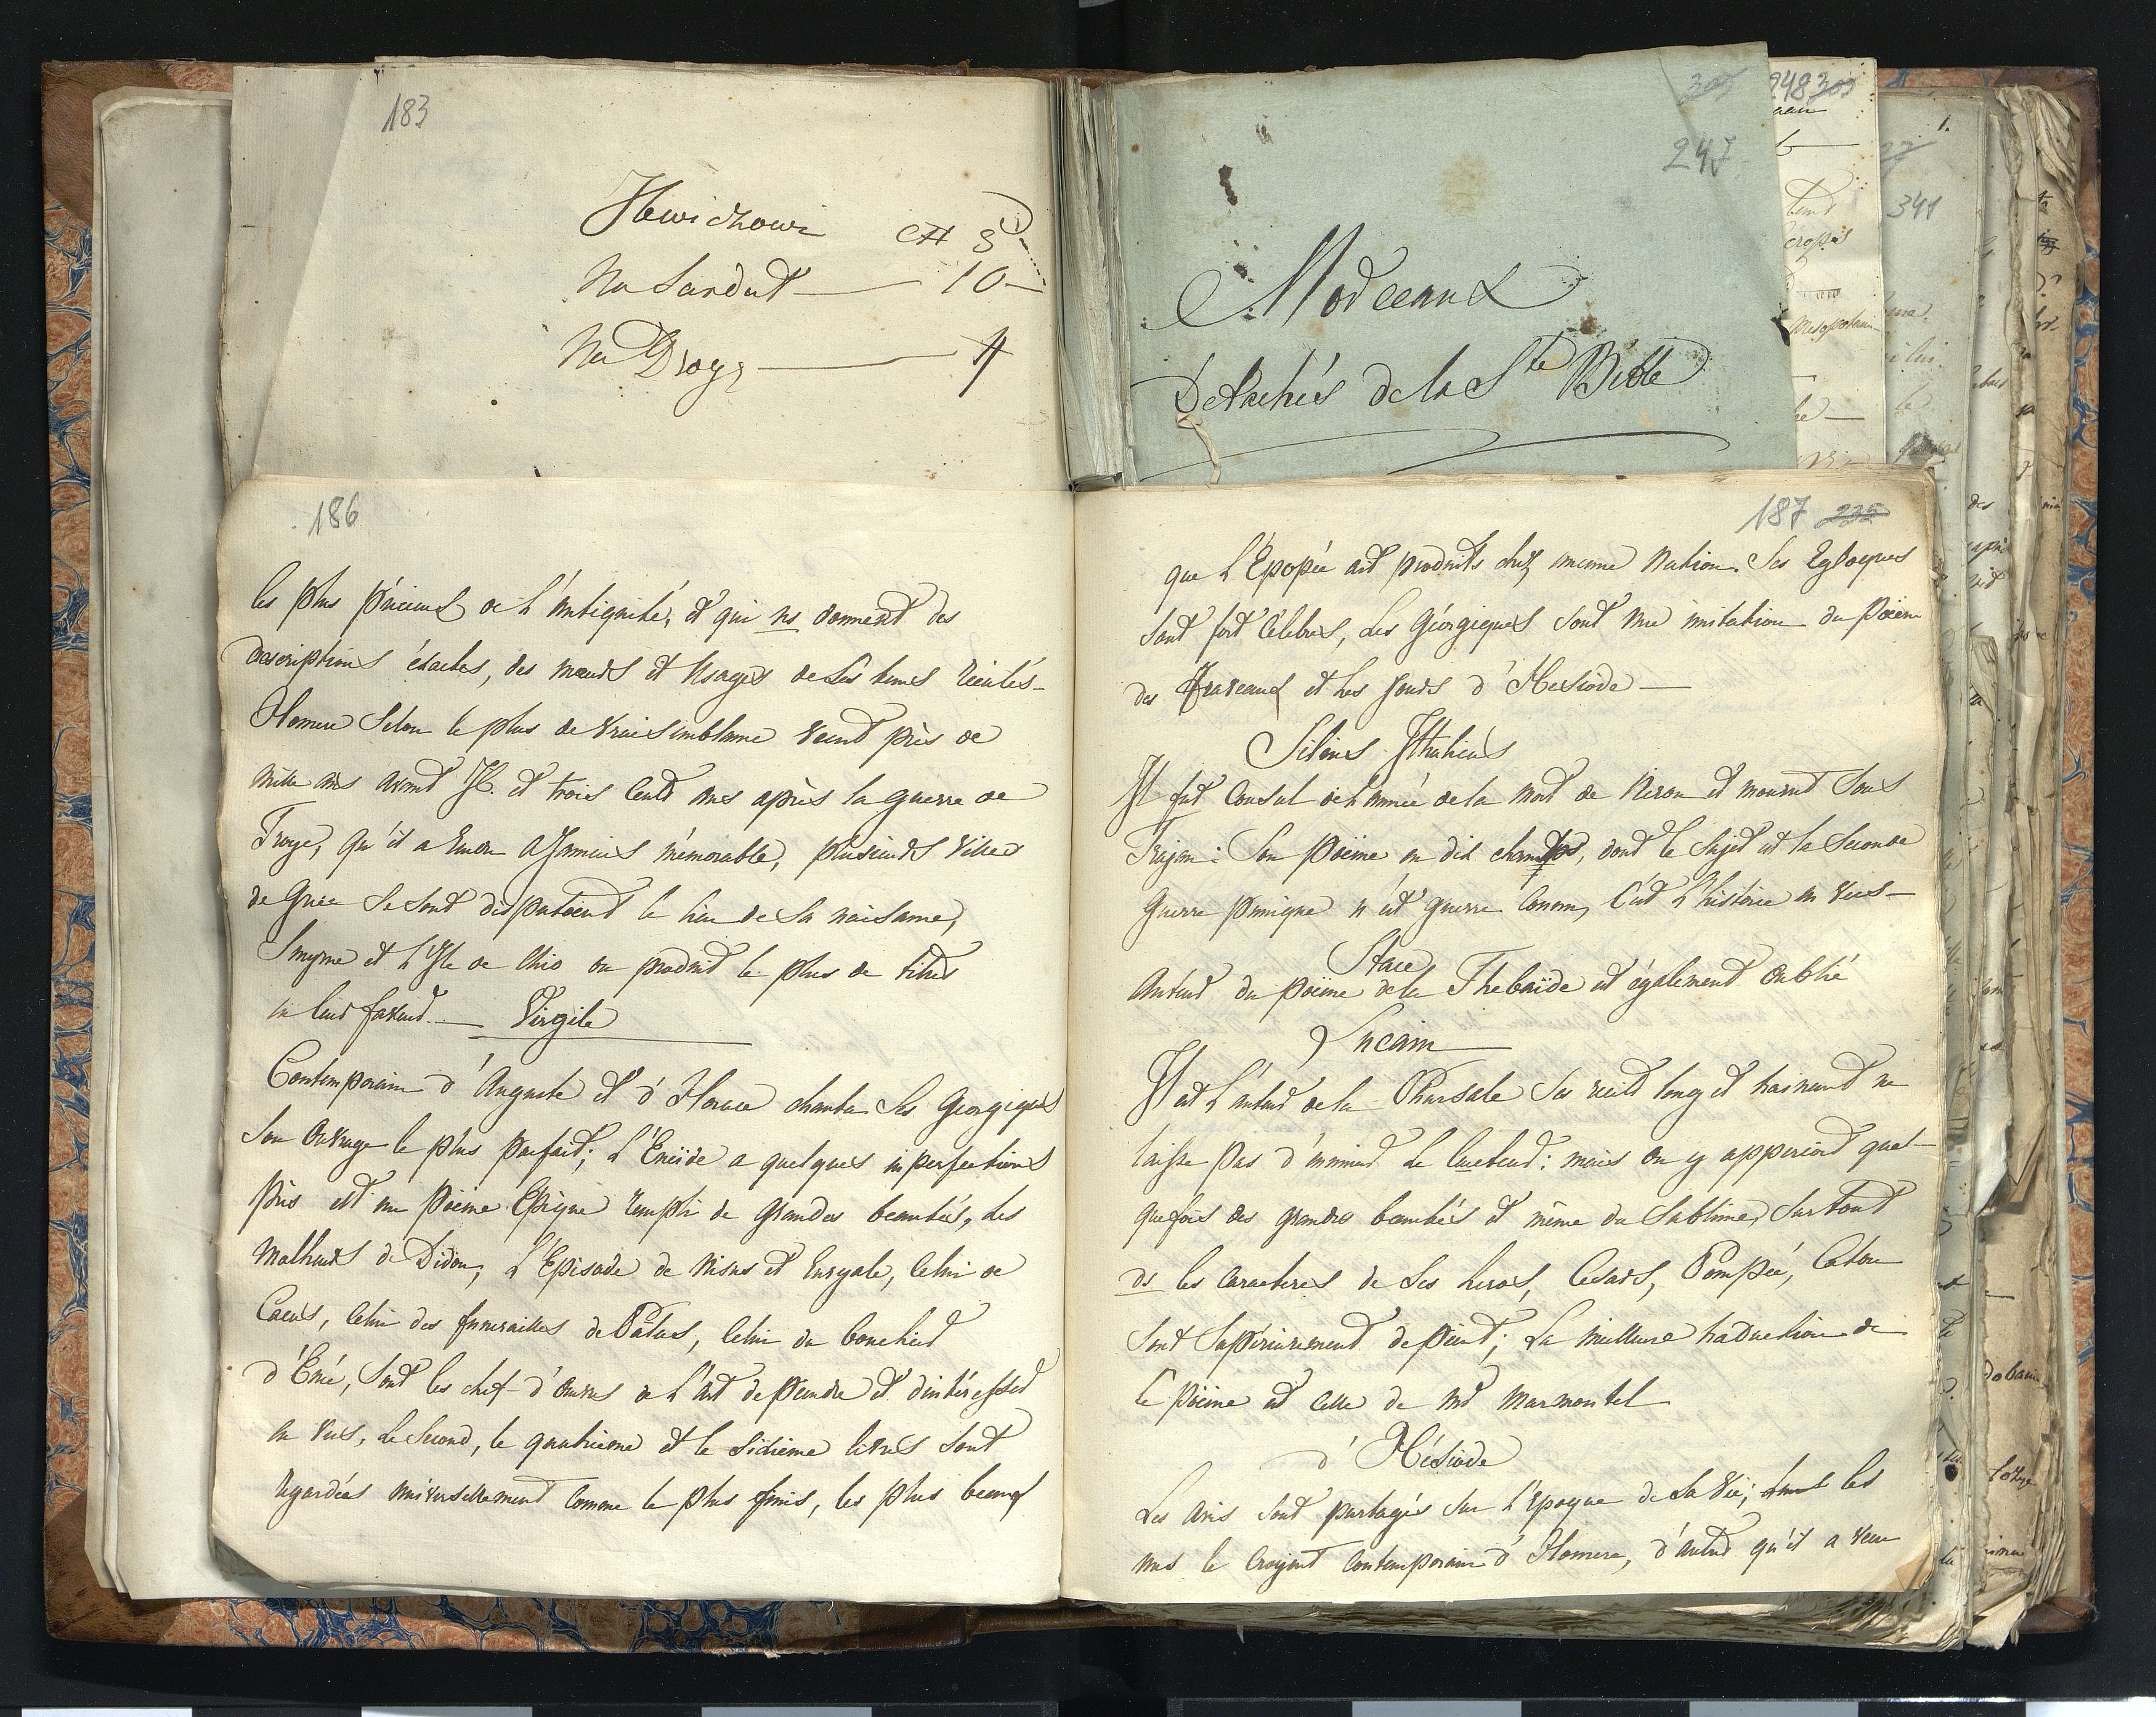 183
Na Sardut — 10 —
Na Drogę — 4
305
247
Morceaux
Détachés de la Ste Bible
248 305
341
1.
186
les plus précieux de l'Antiquité, et qui ns donnent des
descriptions éxactes, des mœurs et Usages de Ses tems reculés –
Homere Selon le plus de Vraisemblance vecut près de
mille ans avant J.C. et trois Cents ans après la guerre de
Troye, qu'il a rendu a Jamais mémorable, plusieurs Villes
de Grece Se sont disputoient le lieu de Sa naisance,
Smyrne et L'Isle de Chio on produit le plus de titres
en leur faveur. — Virgile
Contemporain d'Auguste et d'Horace chanta Ses Georgiques
Son Ouvrage le plus parfait; L'Eneïde a quelques inperfections
près est un poëme Epique rempli de grandes beautés, Les
Malheurs de Didon, L'Episode de Nisus et Euryale, Celui de
Cacus, Celui des funerailles de Palas, Celui du bouclier
d'Enée, Sont les chef-d'œuvres de L'Art de peindre et d'intéresser
en vers, Le Second, le quatrieme et le Sixieme livres Sont
regardées universellement Comme le plus finis, les plus beaux
187 235
que L'Epopée ait produits chez aucune Nation. Ses Eglogues
Sont fort Célebres, Les Géorgiques Sont une imitation du Poëme
des Traveaux et Les Jours d'Hesiode —
Silius Ithalicus
Il fut Consul de L'année de la Mort de Neron et mourut Sous
Trajan: Son Poëme en dix chants, dont le Sujet est la Seconde
Guerre punique n'est guerre Connu, C'est L'histoire en vers —
Stace
Auteur du poëme de la Thebaïde est également Oublié
Lucain
Il est L'auteur de la Pharsale Ses recits long et trainant ne
laisse pas d'ennuier Le Lecteur: mais on y apperçoit quel-
quefois des grandes beautés et même du Sublime, Sur tout
ds les Caracteres de Ses heros, Cesars, Pompée, Caton
Sont Supérieurement depeint; La meilleure traduction de
Ce poëme est Celle de mr Marmontel
d'Hésiode
Les Avis Sont partagés Sur L'Epoque de Sa Vie; les
uns le Croyent Contemporain d'Homere, d'autres qu'il a vecu